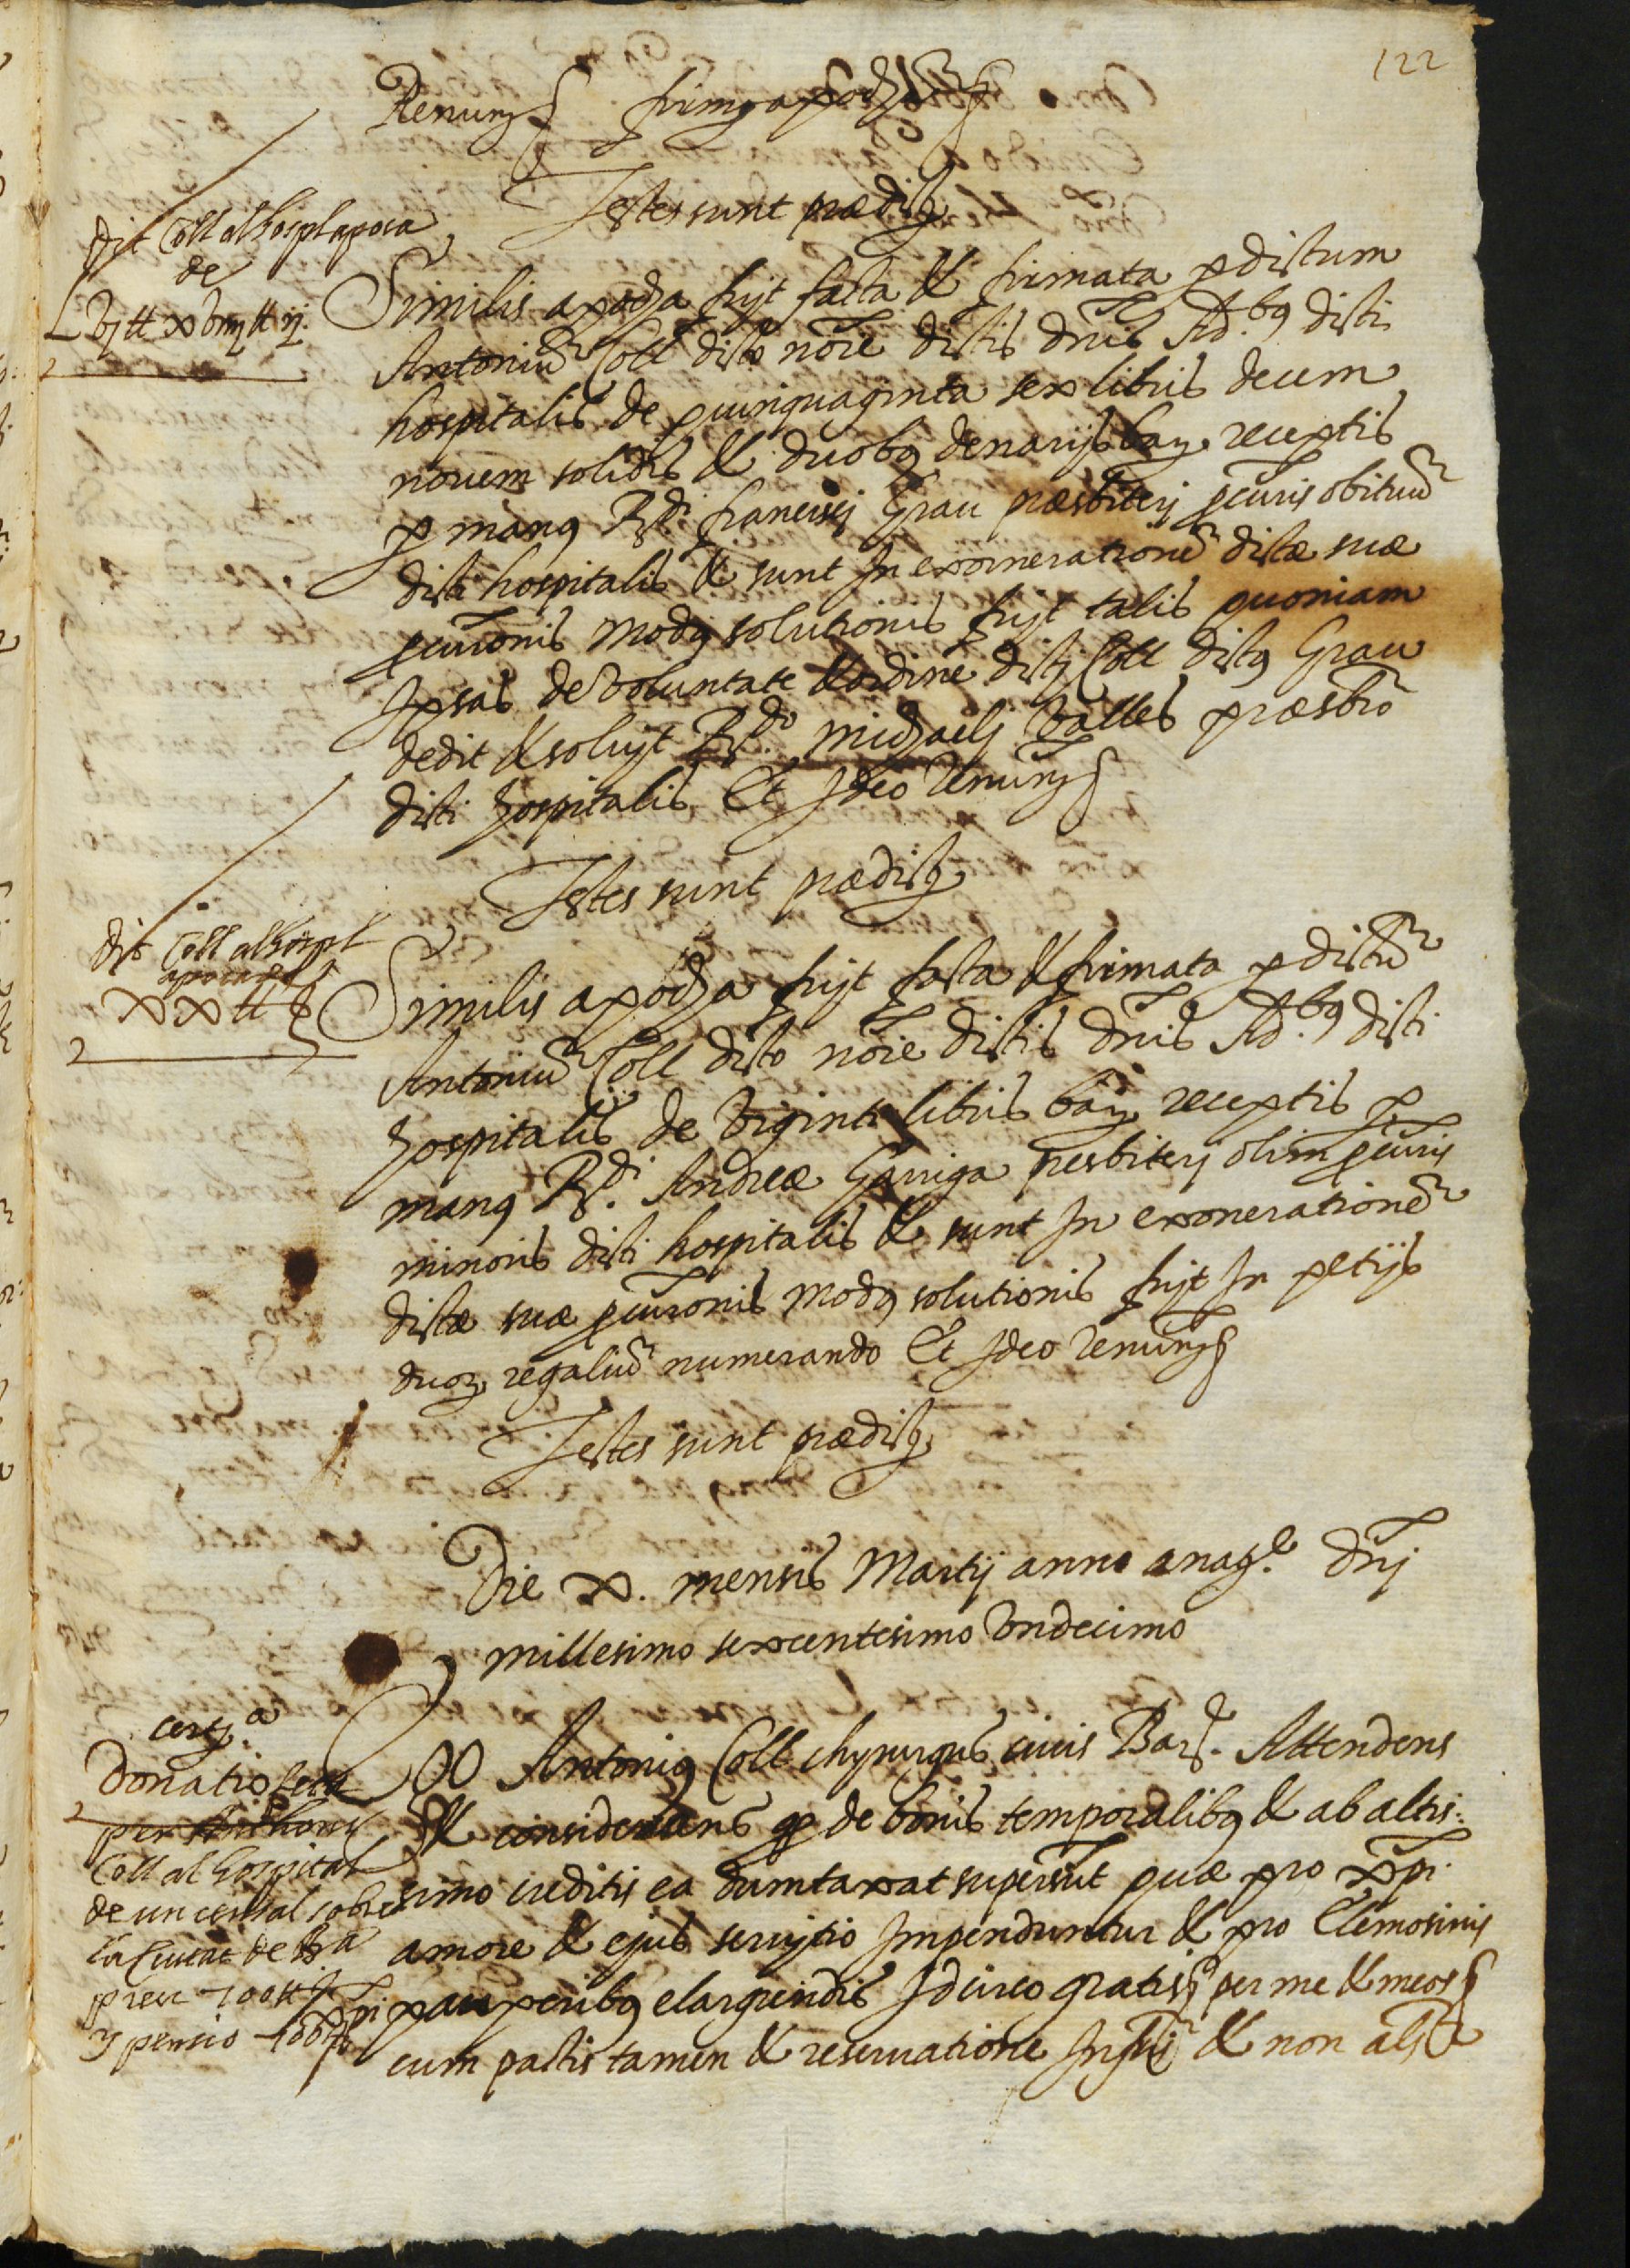 122
Renung
Testes sunt prædicti
dit Coll al hospl apoca
de
Lvj ll xviiij ll ij.
Similis apocha fuit facta & firmata p dictum
Antoniū Coll dicto noīe dictis dnīs Adbus dicti
hospitalis de quinquaginta sex libris decem
novem solidis & duobus denarijs bar. receptis
p manus Rdi. francisci Grau præsbiteri pcuris obituū
dicti hospitalis & sunt In exonerationē dictæ suæ
pcuronis modus solutionis fuit talis quoniam
Ipsas de voluntate & ordine dicti Coll dictus Grau
dedit & soluit Rdo. Michaeli Valles præsbro
dicti hospitalis Et Ideo Renung
Testes sunt prædicti
dit Coll al hospl
apoca de
xx ll s
Similis apocha fuit facta & firmata p dictū
Antoniū Coll dicto noīe dictis dnīs Adbus dicti
hospitalis de viginti libris bar. receptis p
manus Rdi. Andreæ Garriga presbiteri olim pcuris
minoris dicti hospitalis & sunt In exonerationē
dictæ suæ pcuronis modus solutionis fuit In petijs
duor. regaliū numerando Et Ideo Renung
Testes sunt prædicti
Die x. mensis Martij anno a nat.e dnj
millesimo sexcentesimo Undecimo
Donatio feta
per Anthoni
Coll al hospital
de un censal sobre
la Ciutat de Ba
preu 100 ll
y pensio 100 s
Ego Antonius Coll chyrurgus civis Bar. Attendens
& considerans q de bonis temporalibus & ab altis:
simo creditis ea dumtaxat supersūt quæ pro xpi.
amore & ejus servitio Impenduntur & pro Elemosinis
xpi pauperibus elargiendis Idcirco gratis per me & meos
cum pactis tamen & reservatione Infri & non als